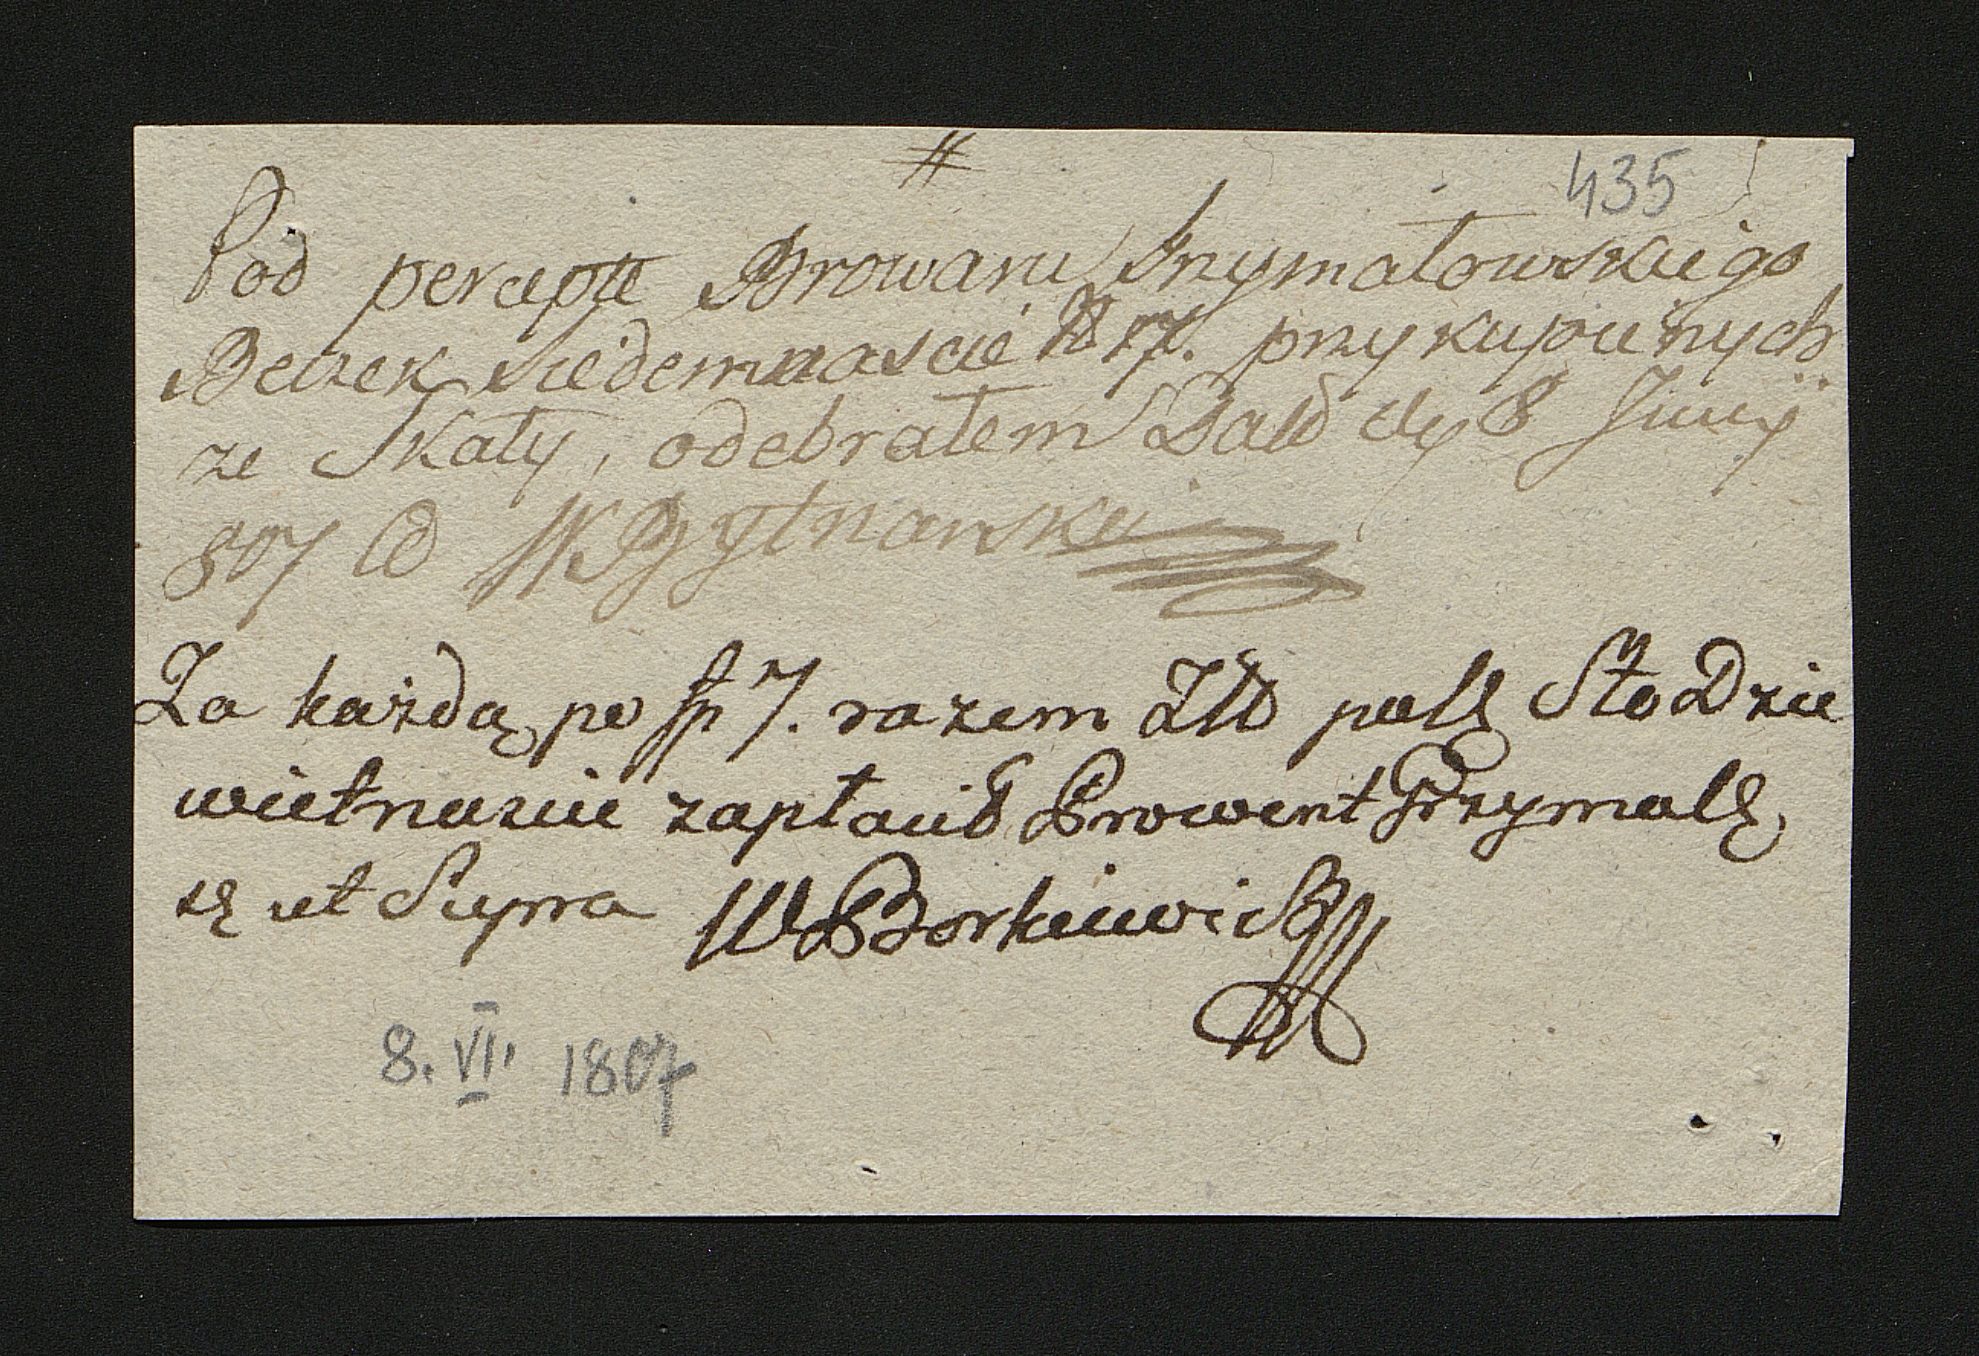 #
435
Pod percepte Browaru Grzymałowskiego
Beczek siedemnascie N 17. przykupienych
ze Skały, odebrałem Datt dy 8 Juny
807 W Bytnarski
Za każdą po fp 7. razem Złł polſ Sto Dzie
wietnascie zapłacić Prowent Grzymalſ,
ut Supra WBorkiewicz
8. VI. 1807